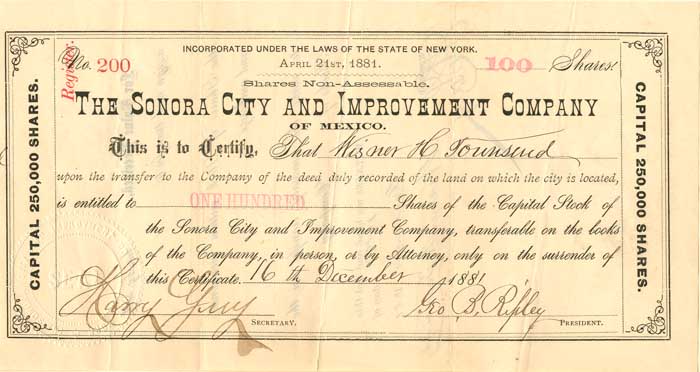 INCORPORATED UNDER THE LAWS OF THE STATE OF NEW YORK.
Register.
No. 200
APRIL 21ST, 1881.
100 Shares.
Shares Non-Assessable.
THE SONORA CITY AND IMPROVEMENT COMPANY
OF MEXICO.
This is to Certify, That Wisner H Townsend
upon the transfer to the Company of the deed duly recorded of the land on which the city is located,
is entitled to ONE HUNDRED Shares of the Capital Stock of
the Sonora City and Improvement Company, transferable on the books
of the Company, in person, or by Attorney, only on the surrender of
this Certificate. 16th December 1881
Harry Geo B. Ripley
SECRETARY. PRESIDENT.
CAPITAL 250,000 SHARES.
CAPITAL 250,000 SHARES.